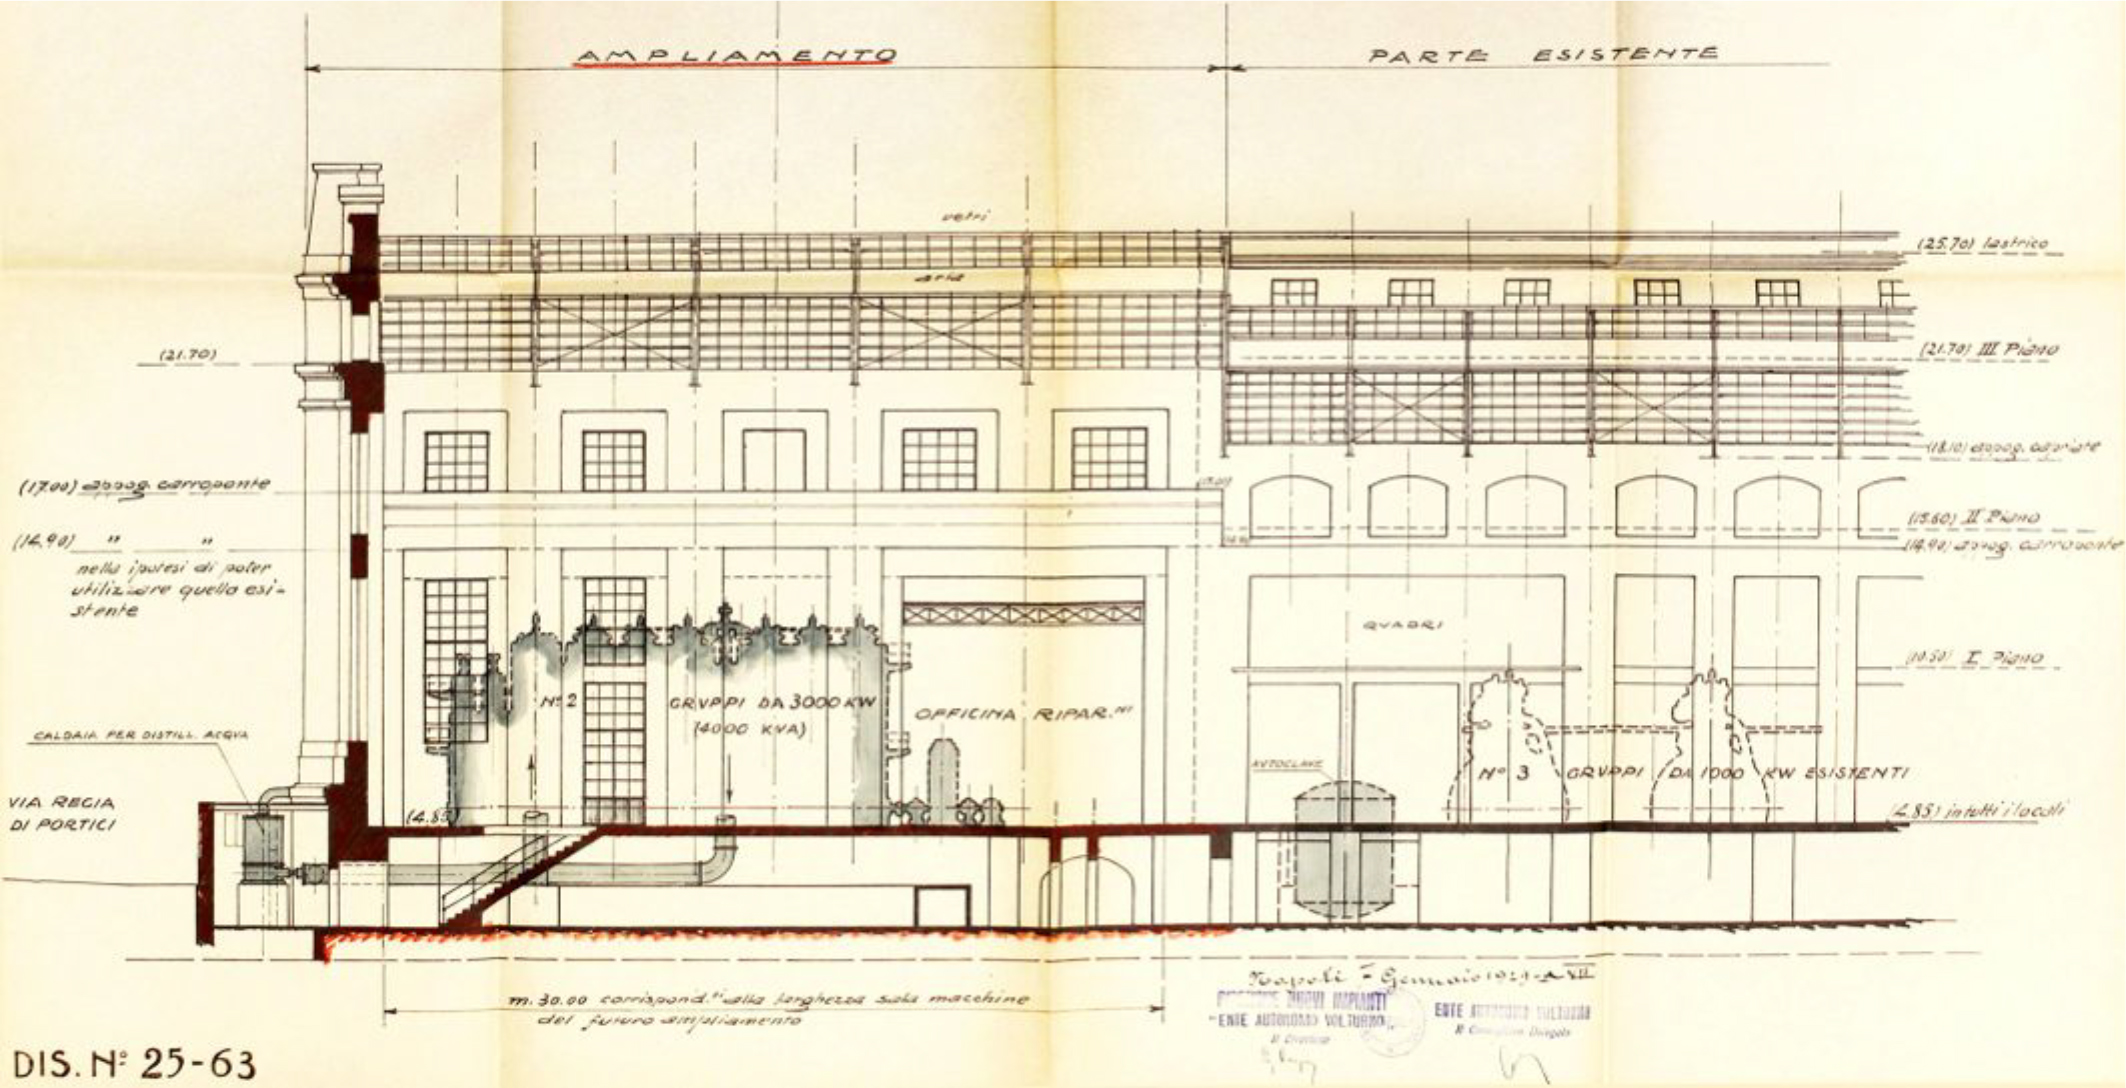 AMPLIAMENTO
PARTE ESISTENTE
vetri
(25.70) lastrico
aria
(21.70)
(21.70) III Piano
(18.10) appog. capriate
(17.00) appog. carroponte
(15.60) II Piano
(14.90) " "
(14.90) appog. carroponte
nella ipotesi di poter
utilizzare quello esi-
stente
QUADRI
(10.50) I Piano
N° 2 GRUPPI DA 3000 KW
(4000 KVA)
OFFICINA RIPAR.NI
CALDAIA PER DISTILL. ACQUA
AUTOCLAVE
N° 3 GRUPPI DA 1000 KW ESISTENTI
VIA REGIA
DI PORTICI
(4.85)
(4.85) in tutti i locali
m. 30.00 corrispond.ti alla larghezza sala macchine
del futuro ampliamento
Napoli - Gennaio
NUOVI IMPIANTI
ENTE AUTONOMO VOLTURNO
ENTE AUTONOMO VOLTURNO
Il Consigliere Delegato
DIS. N° 25-63